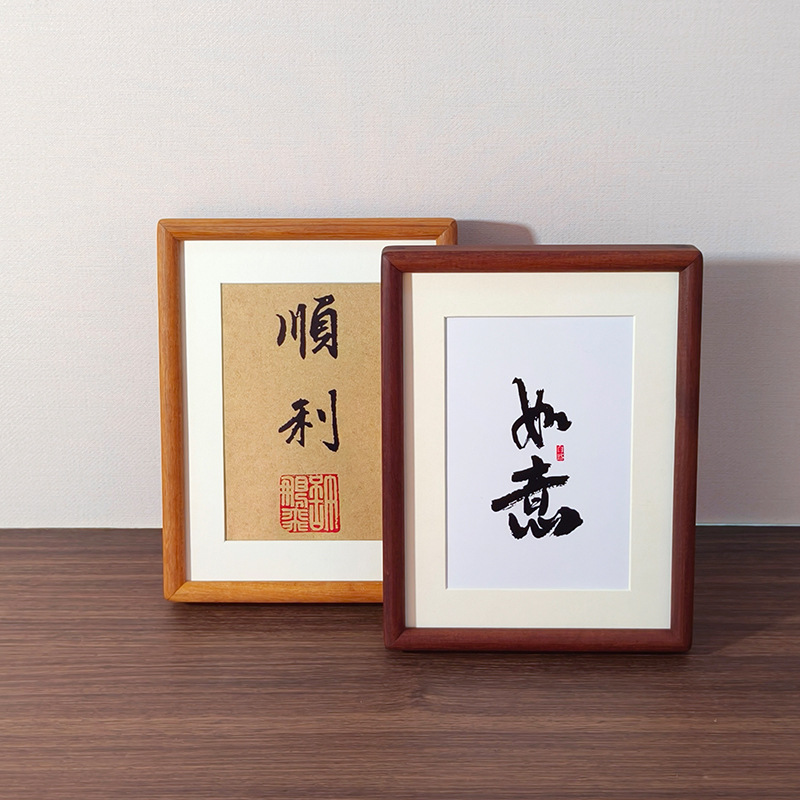 順
利
如
意